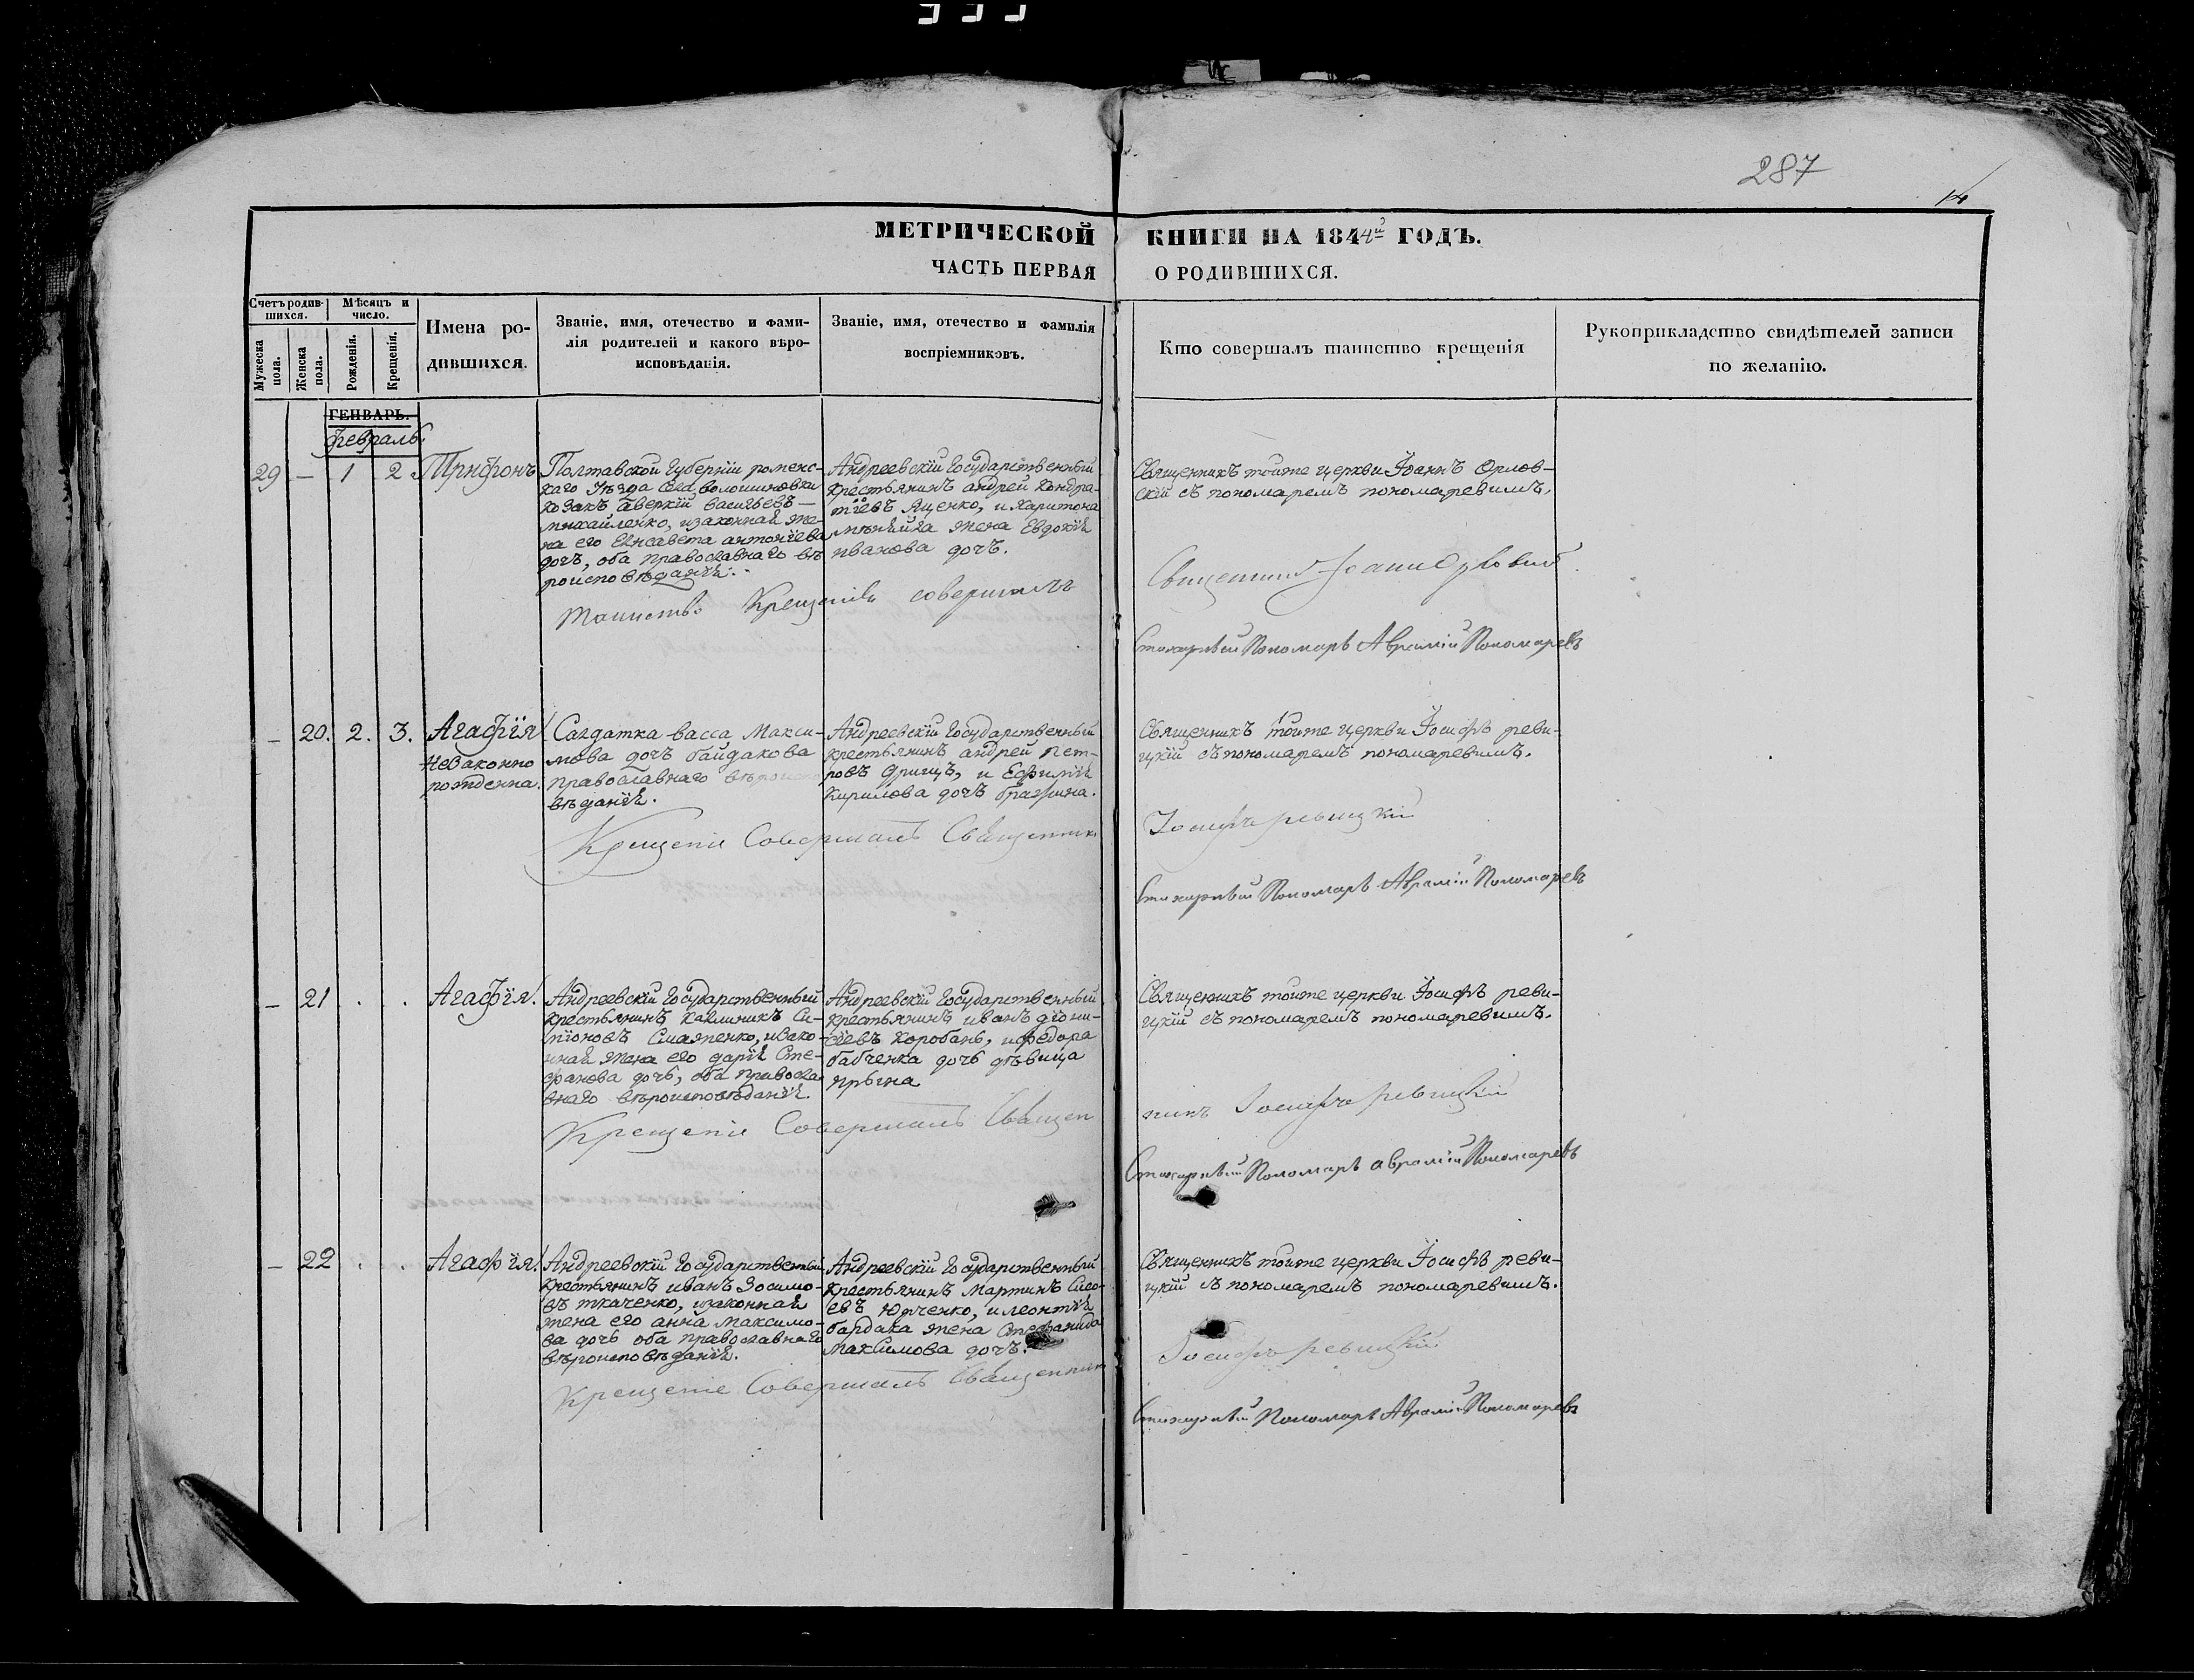 287
МЕТРИЧЕСКОЙ КНИГИ НА 1844й ГОДЪ.
ЧАСТЬ ПЕРВАЯ О РОДИВШИХСЯ.
Счетъ родив-
шихся.
Мужеска пола.
Женска пола.
Мѣсяцъ и
число.
Рожденія.
Крещенія.
Имена ро-
дившихся.
Званіе, имя, отечество и фами-
лія родителей и какого вѣро-
исповѣданія.
Званіе, имя, отечество и фамилія
воспріемниковъ.
Кто совершалъ таинство крещенія
Рукоприкладство свидѣтелей записи
по желанію.
ГЕНВАРЬ.
февраль.
29 — 1 2. Трифонъ
Полтавской Губерніи роменс-
каго Уѣзда Села волошиновки
козакъ аверкій васильевъ —
михайленко, изаконная же-
на его Елисавета антоніева
дочь, оба православнаго вѣ-
роисповѣданія.
Андреевскій Государственный
крестьянинъ андрей Кондра-
тіевъ Ященко, и Харитона
жена Евдокія
иванова дочь.
Священникъ тойже церкви Іоаннъ Орлов-
скій съ пономаремъ пономаревимъ.
Таинство Крещенія совершалъ
Священникъ Іоаннъ Орловскій
Стихарный Пономарь Аврамій Пономаревъ
— 20. 2. 3. Агафія
незаконно
рожденна.
Салдатка васса Макси-
мова дочь байдакова
православнаго вѣроиспо
вѣданія.
Андреевскій Государственный
крестьянинъ андрей пет-
ровъ Дрищъ, и Ефимія
Кирилова дочь бражина.
Священникъ тойже церкви Іосифъ реви-
цкій съ пономаремъ пономаревимъ.
Крещеніе Совершалъ Священникъ
Іосифъ ревицкій
Стихарный Пономарь Аврамій Пономаревъ
— 21 . . Агафія.
Андреевскій Государственный
крестьянинъ Каллиникъ Си-
міоновъ Смаженко, изако-
нная жена его дарія Сте-
фанова дочь, оба правосла
внаго вѣроисповѣданія.
Андреевскій Государственный
крестьянинъ иванъ діони-
сіевъ Коробань, и федора
бабченка дочь дѣвица
ирына
Священникъ тойже церкви Іосифъ реви-
цкій съ пономаремъ пономаревимъ.
Крещеніе Совершалъ Священ
никъ Іосифъ ревицкій
Стихарный Пономарь аврамій Пономаревъ
— 22 . . Агафія.
Андреевскій Государственный
крестьянинъ иванъ Зосимо-
въ ткаченко, изаконная
жена его анна максимо-
ва дочь оба православнаго
вѣроисповѣданія.
Андреевскій Государственный
крестьянинъ Мартинъ Сисо-
евъ Юрченко, и леонтія
бардака жена Стефанида
максимова дочь.
Священникъ тойже церкви Іосифъ реви-
цкій съ пономаремъ пономаревимъ.
Крещеніе Совершалъ Священникъ
Іосифъ ревицкій
Стихарный Пономарь Аврамій Пономаревъ